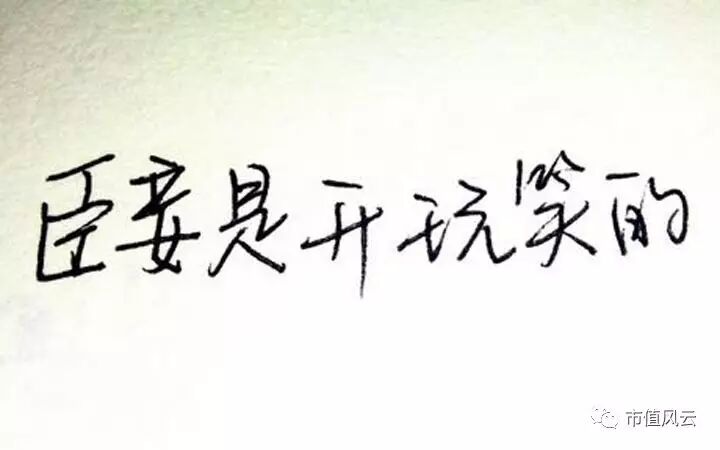 臣妾是开玩笑的
市值风云